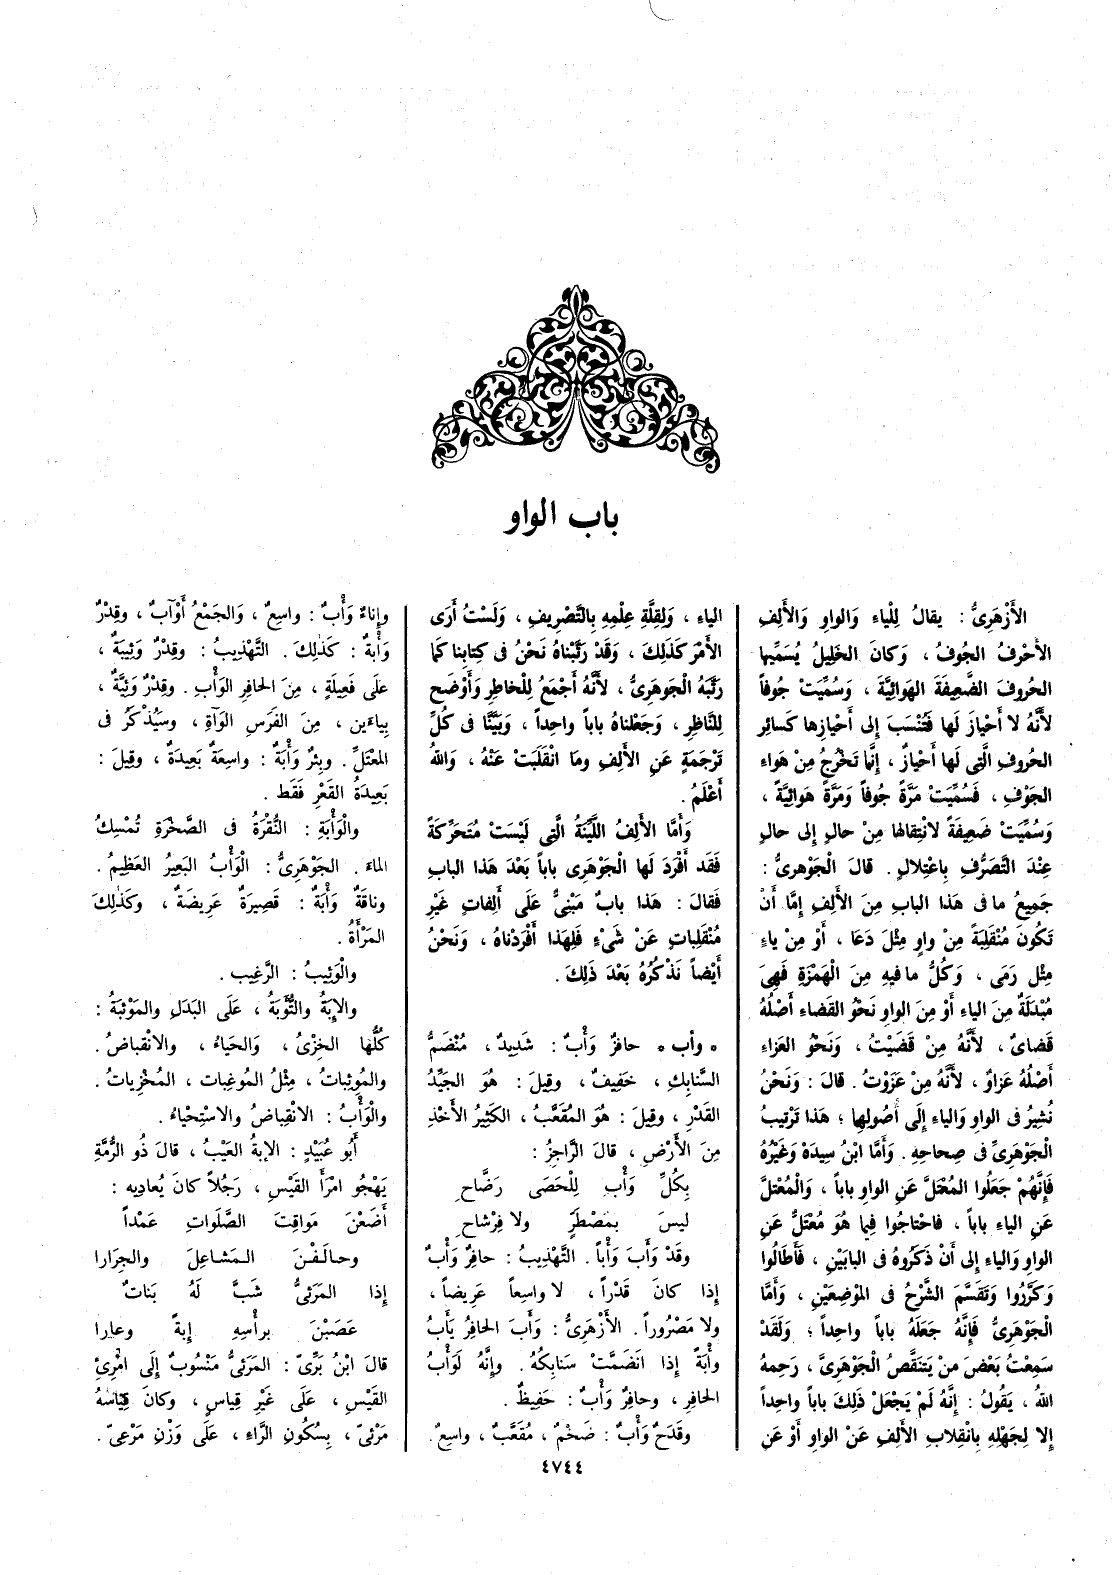 باب الواو
الأَزْهَرِىُّ : يقالُ لِلْياءِ وَالواوِ وَالأَلِفِ
الأحْرفُ الجُوفُ ، وَكانَ الخَلِيلُ يُسَمِّيها
الحُروفَ الضَّعِيفَةَ الهَوائِيَّةَ ، وَسُمِّيَتْ جُوفاً
لأَنَّهُ لا أَحْيازَ لَها فَتُنْسَبَ إلى أَحْيازِها كَسائِرِ
الحُروفِ الَّتِى لَها أَحْيازٌ ، إِنَّما تَخْرُجُ مِنْ هَواءِ
الجَوْفِ ، فَسُمِّيَتْ مَرَّةً جُوفاً وَمَرَّةً هَوائِيَّةً ،
وَسُمِّيَتْ ضَعِيفَةً لانْتِقالِها مِنْ حالٍ إِلى حالٍ
عِنْدَ التَّصَرُّفِ بِاعْتِلالٍ . قالَ الْجَوْهَرِىُّ :
جَمِيعُ ما فى هَذا البابِ مِنَ الأَلِفِ إِمَّا أَنْ
تَكُونَ مُنْقَلِبَةً مِنْ واوٍ مِثْلَ دَعَا ، أَوْ مِنْ ياءٍ
مِثْل رَمَى ، وَكُلُّ ما فِيهِ مِنَ الْهَمْزَةِ فَهِىَ
مُبْدَلَةٌ مِنَ الياءِ أَوْ مِنَ الواوِ نَحْوُ القَضاءِ أَصْلُهُ
قَضاىٌ ، لأَنَّهُ مِنْ قَضَيْتُ ، وَنَحْوُ العَزاءِ
أَصْلُهُ عَزاوٌ ، لأَنَّهُ مِنْ عَزَوْتُ . قالَ : وَنَحْنُ
نُشِيرُ فى الواوِ وَالياءِ إِلَى أُصُولِها ؛ هَذا تَرْتِيبُ
الْجَوْهَرِىِّ فى صِحاحِهِ . وَأَمَّا ابْنُ سِيدَهْ وَغَيْرُهُ
فَإِنَّهُمْ جَعَلُوا المُعْتَلَّ عَنِ الواوِ باباً ، وَالْمُعْتَلَّ
عَنِ الياءِ باباً ، فاحْتاجُوا فِيما هُوَ مُعْتَلٌّ عَنِ
الواوِ وَالياءِ إِلى أَنْ ذَكَرُوهُ فى البابَيْنِ ، فَأَطالُوا
وَكَرَّرُوا وَتَقَسَّمَ الشَّرْحُ فى المَوْضِعَيْنِ ، وَأَمَّا
الْجَوْهَرِىُّ فَإِنَّهُ جَعَلَهُ باباً واحِداً ؛ وَلَقَدْ
سَمِعْتُ بَعْضَ مَنْ يَتَنَقَّصُ الْجَوْهَرِىَّ ، رَحِمَهُ
اللهُ ، يَقُولُ : إِنَّهُ لَمْ يَجْعَلْ ذَلِكَ باباً واحِداً
إِلا لِجَهْلِهِ بِانْقِلابِ الأَلِفِ عَنِ الواوِ أَوْ عَنِ
الياءِ ، وَلِقِلَّةِ عِلْمِهِ بِالتَّصْرِيفِ ، وَلَسْتُ أَرَى
الأَمْرَ كَذَلِكَ ، وَقَدْ رَتَّبْناهُ نَحْنُ فى كِتابِنا كَما
رَتَّبَهُ الْجَوْهَرِىُّ ، لأَنَّهُ أَجْمَعُ لِلْخاطِرِ وَأَوْضَح
لِلنَّاظِرِ ، وَجَعَلْناهُ باباً واحِداً ، وَبَيَّنَّا فى كُلِّ
تَرْجَمَةٍ عَنِ الأَلِفِ وما انْقَلَبَتْ عَنْهُ ، وَاللهُ
أَعْلَمُ .
وَأَمَّا الأَلِفُ اللَّيِّنَةُ الَّتِى لَيْسَتْ مُتَحَرِّكَةً
فَقَد أَفْرَدَ لَها الْجَوْهَرِى باباً بَعْدَ هَذا البابِ
فَقالَ : هَذا بابٌ مَبْنِىٌّ عَلَى أَلِفاتٍ غَيْرِ
مُنْقَلِباتٍ عَنْ شَىْءٍ فَلِهَذا أَفْرَدْناهُ ، وَنَحْنُ
أَيْضاً نَذْكُرُهُ بَعْدَ ذَلِكَ .
٭ وأب ٭ حافِرٌ وَأْبٌ : شَدِيدٌ ، مُنْضَمُّ
السَّنابِكِ ، خَفِيفٌ ، وَقِيلَ : هُوَ الجَيِّدُ
القَدْرِ ، وقِيلَ : هُوَ المُقَعَّبُ ، الكَثِيرُ الأَخْذِ
مِنَ الأَرْضِ ، قالَ الرَّاجِزُ :
بِكُلِّ وَأْبٍ لِلْحَصَى رَضَّاحِ
ليسَ بِمُصْطَرٍّ ولا فِرْشاحِ
وقَدْ وَأَبَ وَأْباً . التَّهْذِيبُ : حافِرٌ وَأْبٌ
إِذا كانَ قَدْراً ، لا واسِعاً عَرِيضاً ،
ولا مَصْرُوراً . الأَزْهَرِىُّ : وَأَبَ الحَافِرُ يَأَبُ
وأْبَةً إِذا انْضَمَّتْ سَنابِكُهُ . وإِنَّهُ لَوَأْبُ
الحافِرِ ، وحافِرٌ وَأْبٌ : حَفِيظٌ .
وقَدَحٌ وَأْبٌ : ضَخْمٌ ، مُقَعَّبٌ ، واسِعٌ .
وإِناءٌ وَأْبٌ : واسِعٌ ، وَالجَمْعُ أَوْآبٌ ، وقِدْرٌ
وَأْبَةٌ : كَذٰلِكَ . التَّهْذِيبُ : وقِدْرٌ وَئِيبَةٌ ،
علَى فَعِيلَةٍ ، مِنَ الحَافِرِ الوَأْبِ . وقِدْرٌ وَئِيَّةٌ ،
بِياءَين ، مِنَ الفَرَسِ الوَآةِ ، وسَيُذْكَرُ فى
المُعْتَلِّ . وبِئرٌ وَأْبَةٌ : واسِعَةٌ بَعِيدَةٌ ، وقِيلَ :
بَعِيدَةُ القَعْرِ فَقَط .
والْوَأْبَةِ : النُّقْرَةُ فى الصَّخْرَةِ تُمْسِكُ
الماءَ . الجَوْهَرِىُّ : الْوَأْبُ البَعِيرُ العَظِيمُ .
وناقَةٌ وَأْبَةٌ : قَصِيرَةٌ عَرِيضَةٌ ، وكَذٰلِكَ
المَرْأَةُ .
والْوَئِيبُ : الرَّغِيب .
والإِبَةُ والتُّؤَبَةُ ، عَلَى البَدَلِ والمَوْئِبَةُ :
كُلُّها الخِزْىُ ، وَالحَياءُ ، والانْقِباضُ .
والمُوئِباتُ ، مِثْلُ المُوغِبات ، المُخْزِياتُ .
والْوَأْبُ : الانْقِباضُ والاسْتِحْياءُ .
أَبُو عُبَيْدٍ : الإِبةُ العَيْبُ ، قالَ ذُو الرُّمَّةِ
يَهْجُو امْرَأَ القَيْسِ ، رَجُلاً كانَ يُعادِيه :
أَضَعْنَ مَواقِتَ الصَّلَواتِ عَمْداً
وحـالَـفْـنَ الـمَـشاعِـلَ والجِرَارا
إِذا المَرَئىُّ شَبَّ لَهُ بَناتٌ
عَصَبْنَ بِرأْسِهِ إِبةً وعارا
قالَ ابْنُ بَرِّىّ : المَرَئىُّ مَنْسُوبٌ إِلَى امْرِئِ
القَيْسِ ، عَلَى غَيْرِ قِياسٍ ، وكانَ قِياسُهُ
مَرْئىّ ، بِسُكُونِ الرَّاءِ ، عَلَى وَزْنِ مَرْعىّ .
٤٧٤٤